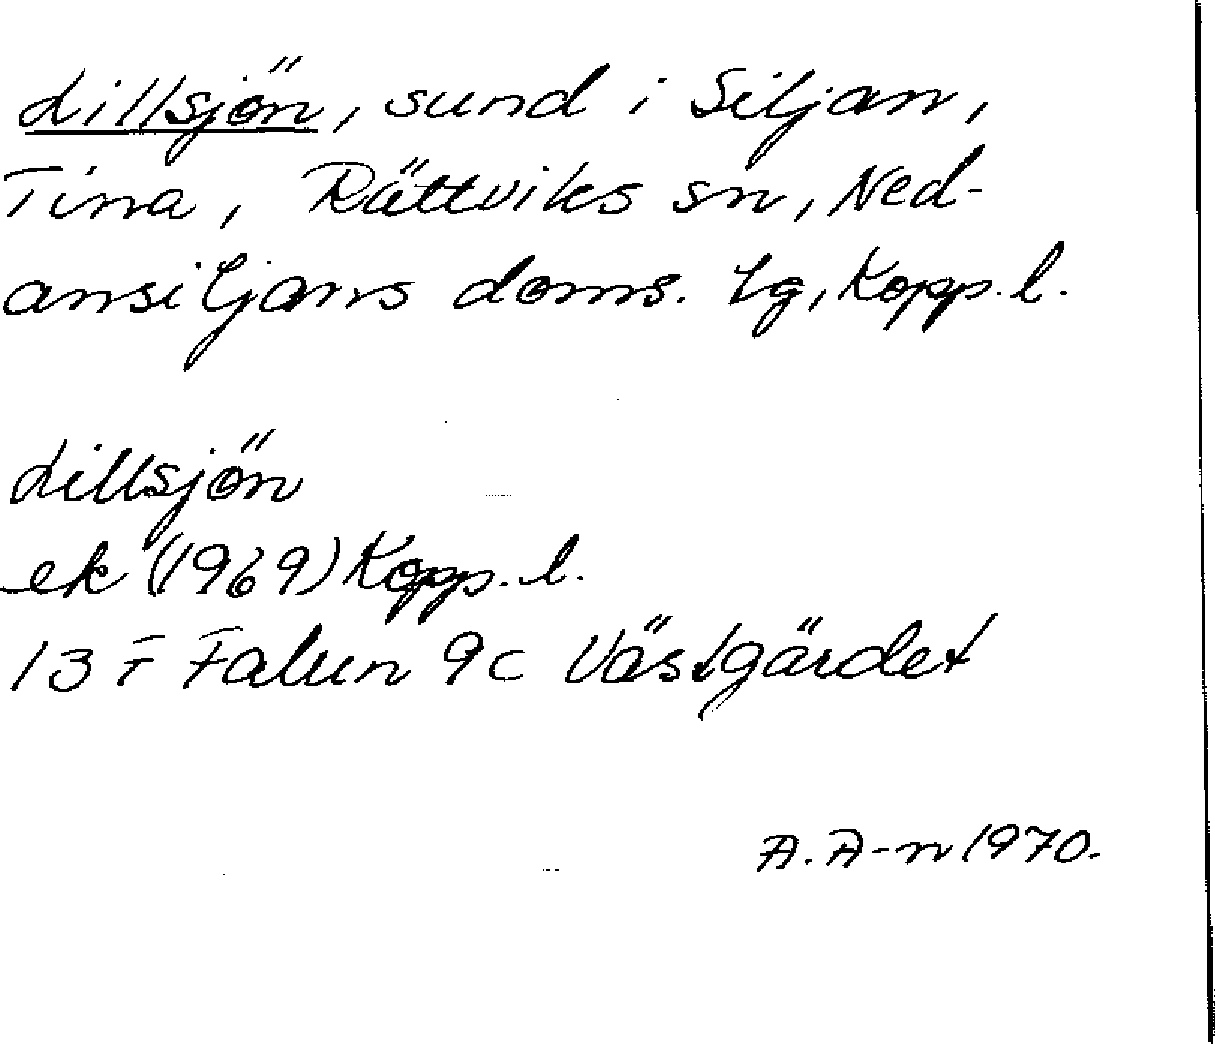 Lillsjön, sund i Siljan,
Tina, Rättviks sn, Ned-
ansiljans doms. tg, Kopp. l.
Lillsjön
ek (1969) Kopp. l.
13 F Falun 9c Västgärdet
A. A-n 1970.